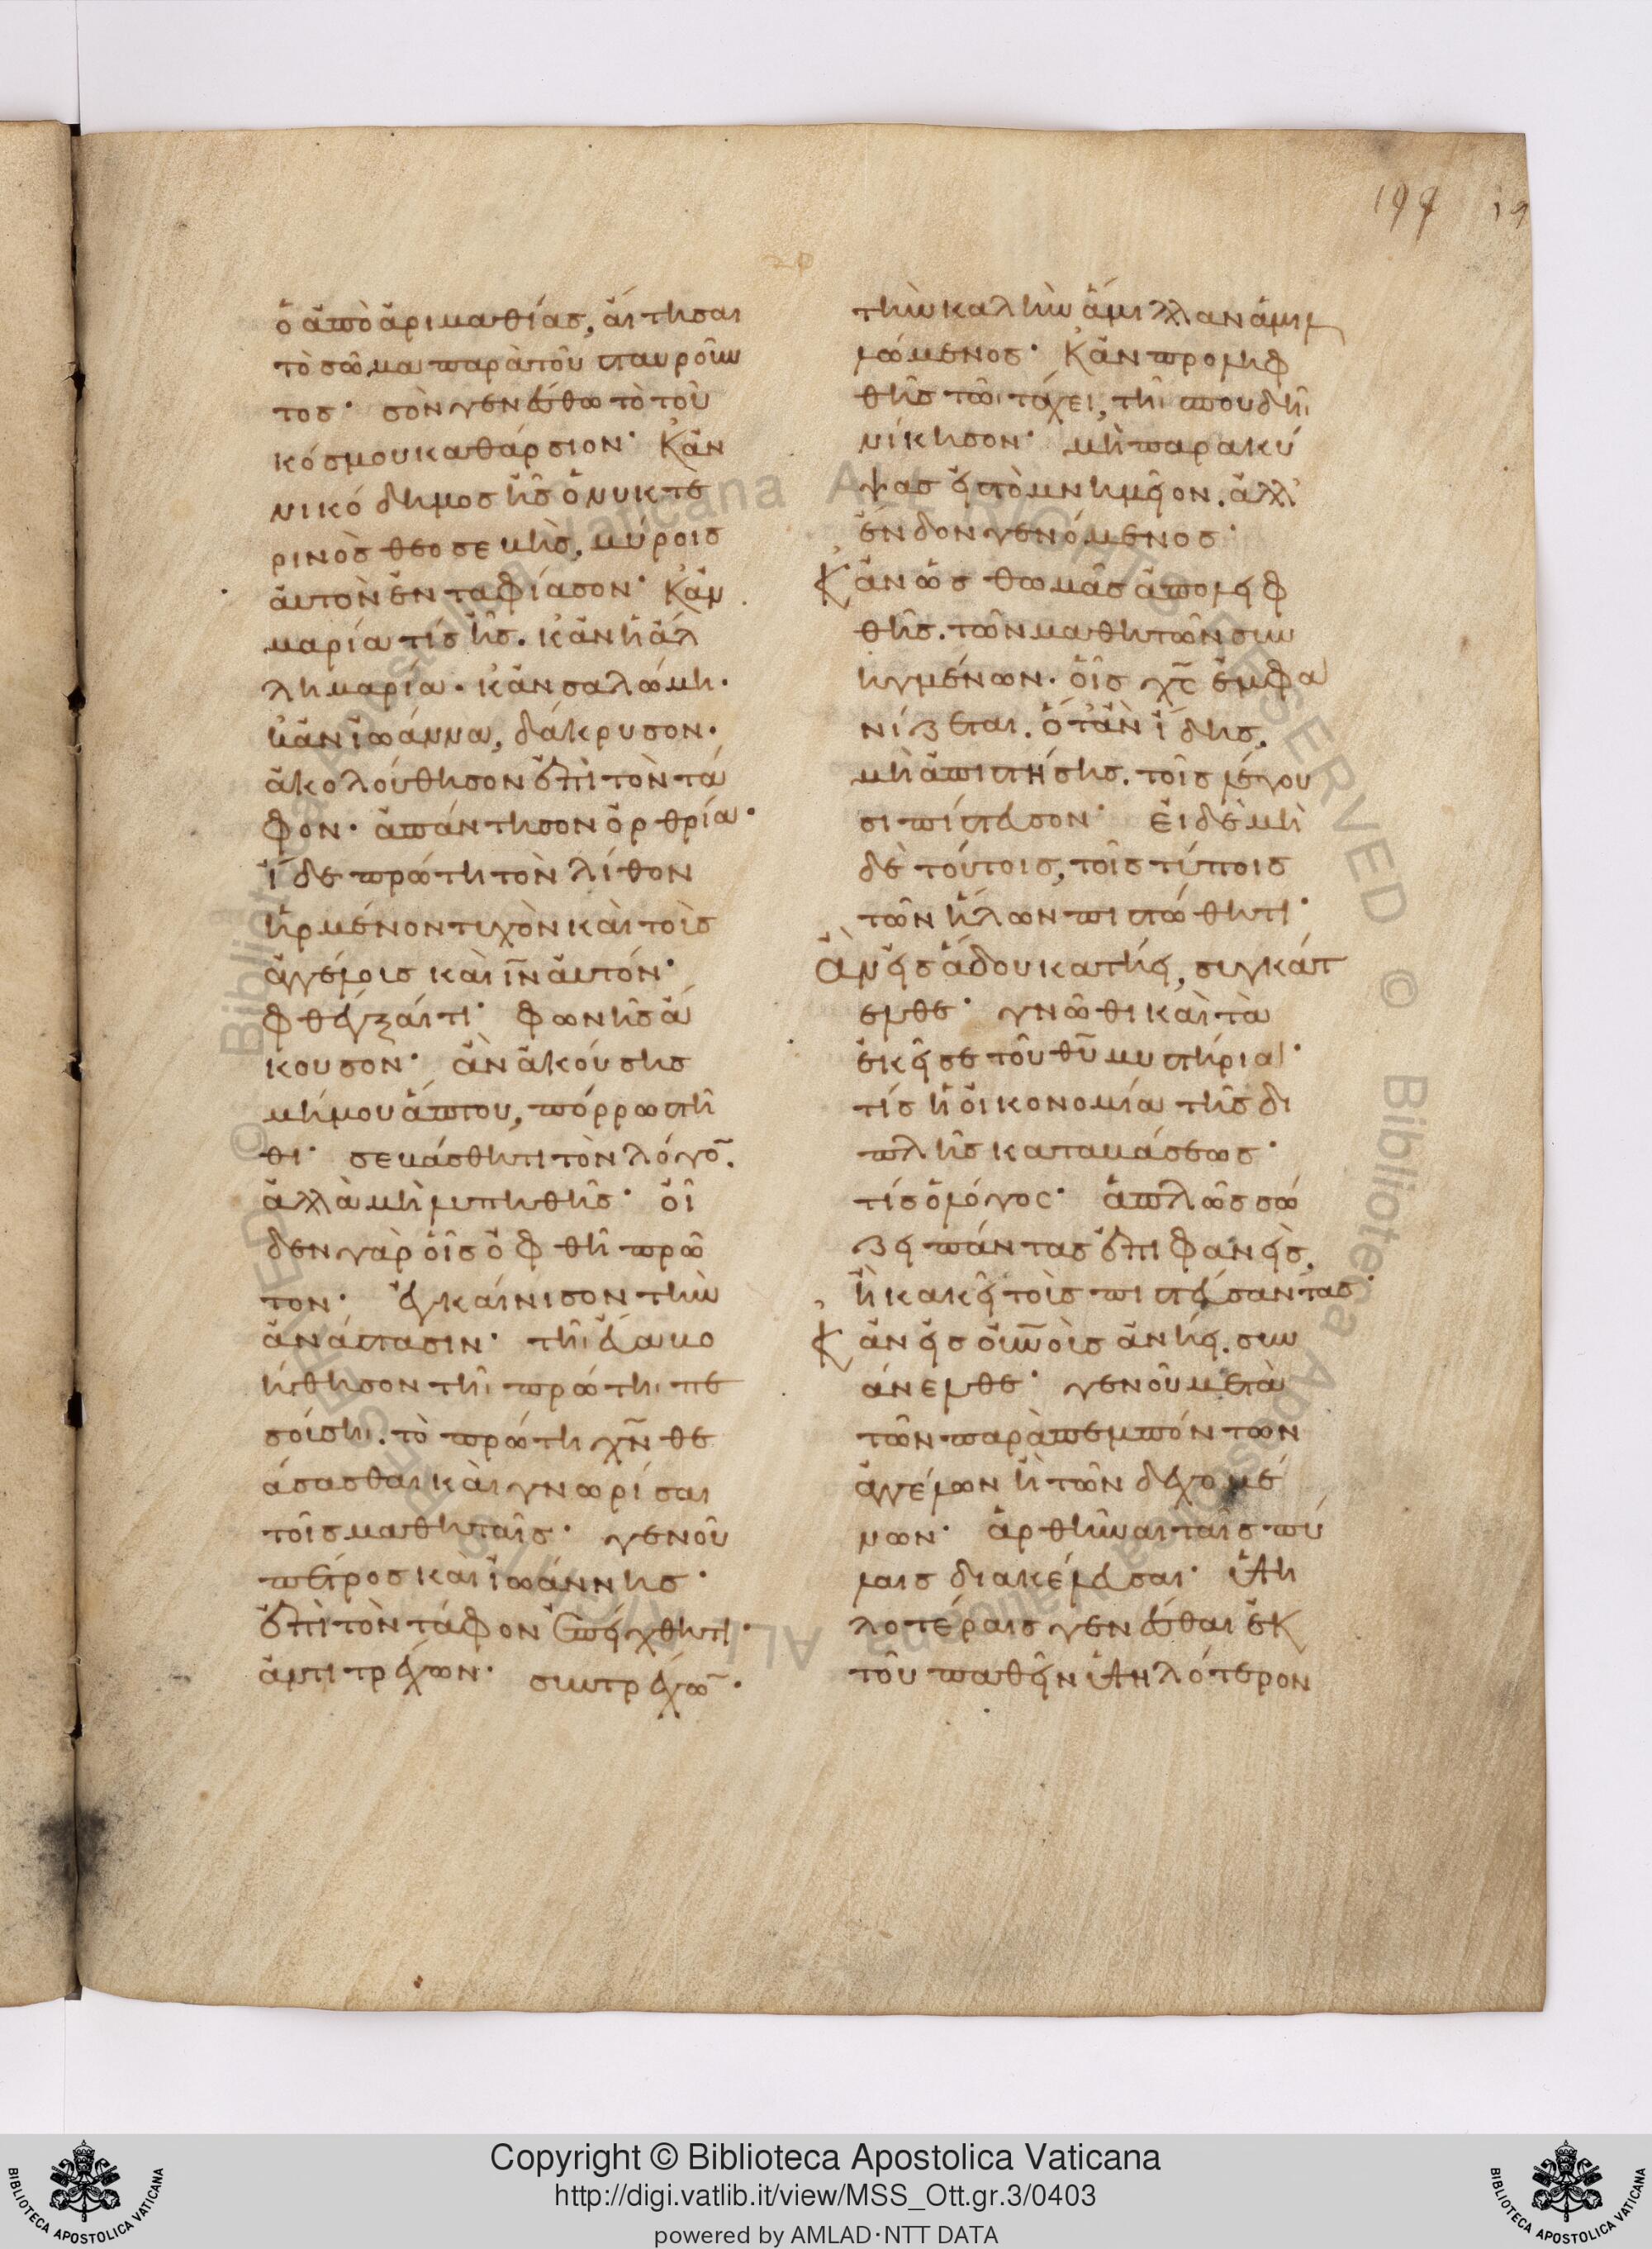 199 19
ὁ ἀπὸ ἀριμαθίας, αἴτησαι
τὸ σῶμα παρὰ τοῦ σταυροῦν
τος· σὸν γενέσθω τὸ τοῦ
κόσμου καθάρσιον· Κἂν
νικόδημος ἦς ὁ νυκτε
ρινὸς θεοσεβὴς, μύροις
αὐτὸν ἐνταφίασον· Κἂν
μαρία τίς ἦς. κἂν ἡ ἄλ
λη μαρία. κἂν σαλώμη.
κἂν ἰωάννα, δάκρυσον.
ἀκολούθησον ἐπὶ τὸν τά
φον. ἀπάντησον ὀρθρία·
ἴδε πρώτη τὸν λίθον
ἠρμένον τυχὸν καὶ τοὺς
ἀγγέλους καὶ ιν αὐτόν·
φθέγξαί τι· φωνῆς ἄ
κουσον· ἂν ἀκούσης
μή μου ἅπτου, πόρρω στῆ
θι· σεβάσθητι τὸν λόγον.
ἀλλὰ μὴ λυπηθῆς· οἶ
δεν γὰρ οἷς ὀφθῆ πρῶ
τον· ἐγκαίνισον τὴν
ἀνάστασιν· τῆ εὔα βο
ήθησον τῆ πρώτη πε
σούση. τὸ πρώτη χν θε
άσασθαι καὶ γνωρίσαι
τοῖς μαθηταῖς· γενοῦ
πέτρος καὶ ἰωάννης·
ἐπὶ τὸν τάφον ἐπείχθητι·
ἀντιτρέχων· συντρέχων·
τὴν καλὴν ἅμιλλαν ἁμιλ
λώμενος· Κἂν προληφ
θῆς τῶ τάχει, τῆ σπουδῆ
νίκησον· μὴ παρακύ
ψας εἰς τὸ μνημεῖον. ἀλλ'
ἔνδον γενόμενος·
Κἂν ὡς θωμᾶς ἀπολειφ
θῆς. τῶν μαθητῶν συν
ηγμένων. οἷς χς ἐμφα
νίζεται. ὅταν ἴδης,
μὴ ἀπιστήσης. τοῖς λέγου
σι πίστευσον· εἰ δὲ μὴ
δὲ τούτοις, τοῖς τύποις
τῶν ἥλων πιστώθητι·
Ἂν εἰς ἅδου κατίη, συγκάτ
ελθε· γνῶθι καὶ τὰ
ἐκεῖσε τοῦ θυ μυστήρια·
τίς ἡ οἰκονομία τῆς δι
πλῆς καταβάσεως·
τίς ὁ λόγος· ἁπλῶς σώ
ζει πάντας ἐπιφανεὶς,
ἢ κακεῖ τοὺς πιστεύσαντας·
Κἂν εἰς οὐνοὺς ἀνίη. συν
άνελθε· γενοῦ μετὰ
τῶν παραπεμπόντων
ἀγγέλων ἢ τῶν δεχομέ
νων· ἀρθῆναι ταῖς πύ
λαις διακέλευσαι· ὑψη
λοτέραις γενέσθαι ἐκ
τοῦ παθεῖν ὑψηλότερον
Copyright © Biblioteca Apostolica Vaticana
http://digi.vatlib.it/view/MSS_Ott.gr.3/0403
powered by AMLAD·NTT DATA
BIBLIOTECA APOSTOLICA VATICANA
BIBLIOTECA APOSTOLICA VATICANA